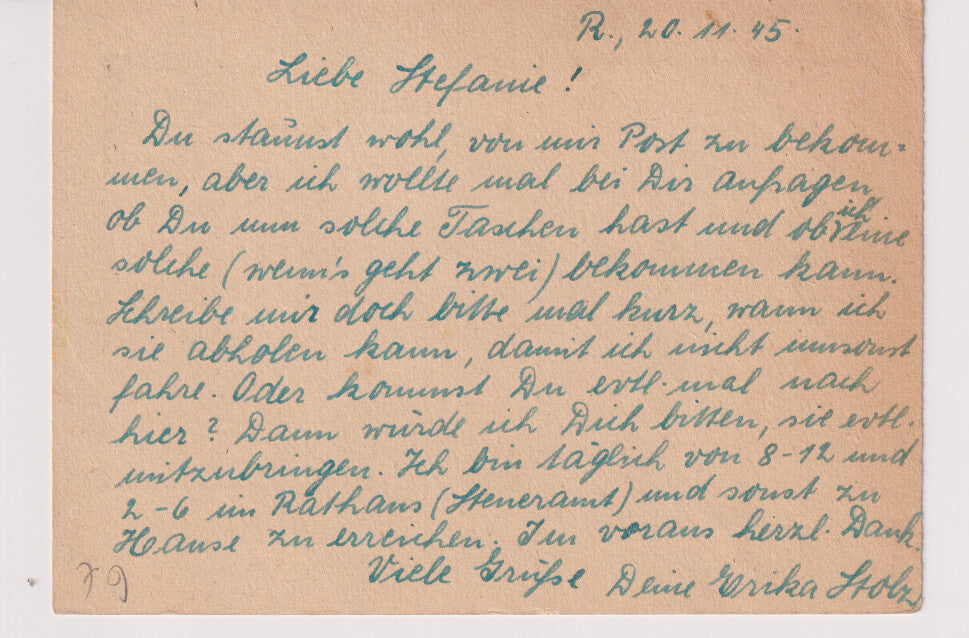 R., 20.11.45.
Liebe Stefanie!
Du staunst wohl, von mir Post zu bekom=
men, aber ich wollte mal bei Dir anfragen,
ob Du nun solche Taschen hast und ob ich eine
solche (wenn's geht zwei) bekommen kann.
Schreibe mir doch bitte mal kurz, wann ich
sie abholen kann, damit ich nicht umsonst
fahre. Oder kommst Du evtl. mal nach
hier? Dann würde ich Dich bitten, sie evtl.
mitzubringen. Ich bin täglich von 8-12 und
2-6 im Rathaus (Steueramt) und sonst zu
Hause zu erreichen. Im voraus herzl. Dank.
Viele Grüße Deine Erika Stolz